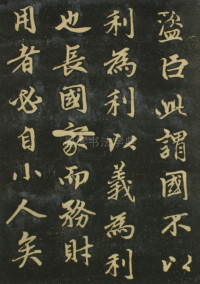 盗臣此謂國不以
利為利以義為利
也長國家而務財
用者必自小人矣